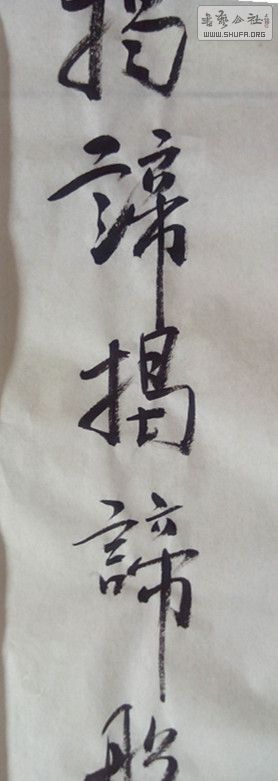 書藝公社
WWW.SHUFA.ORG
揭諦揭諦般